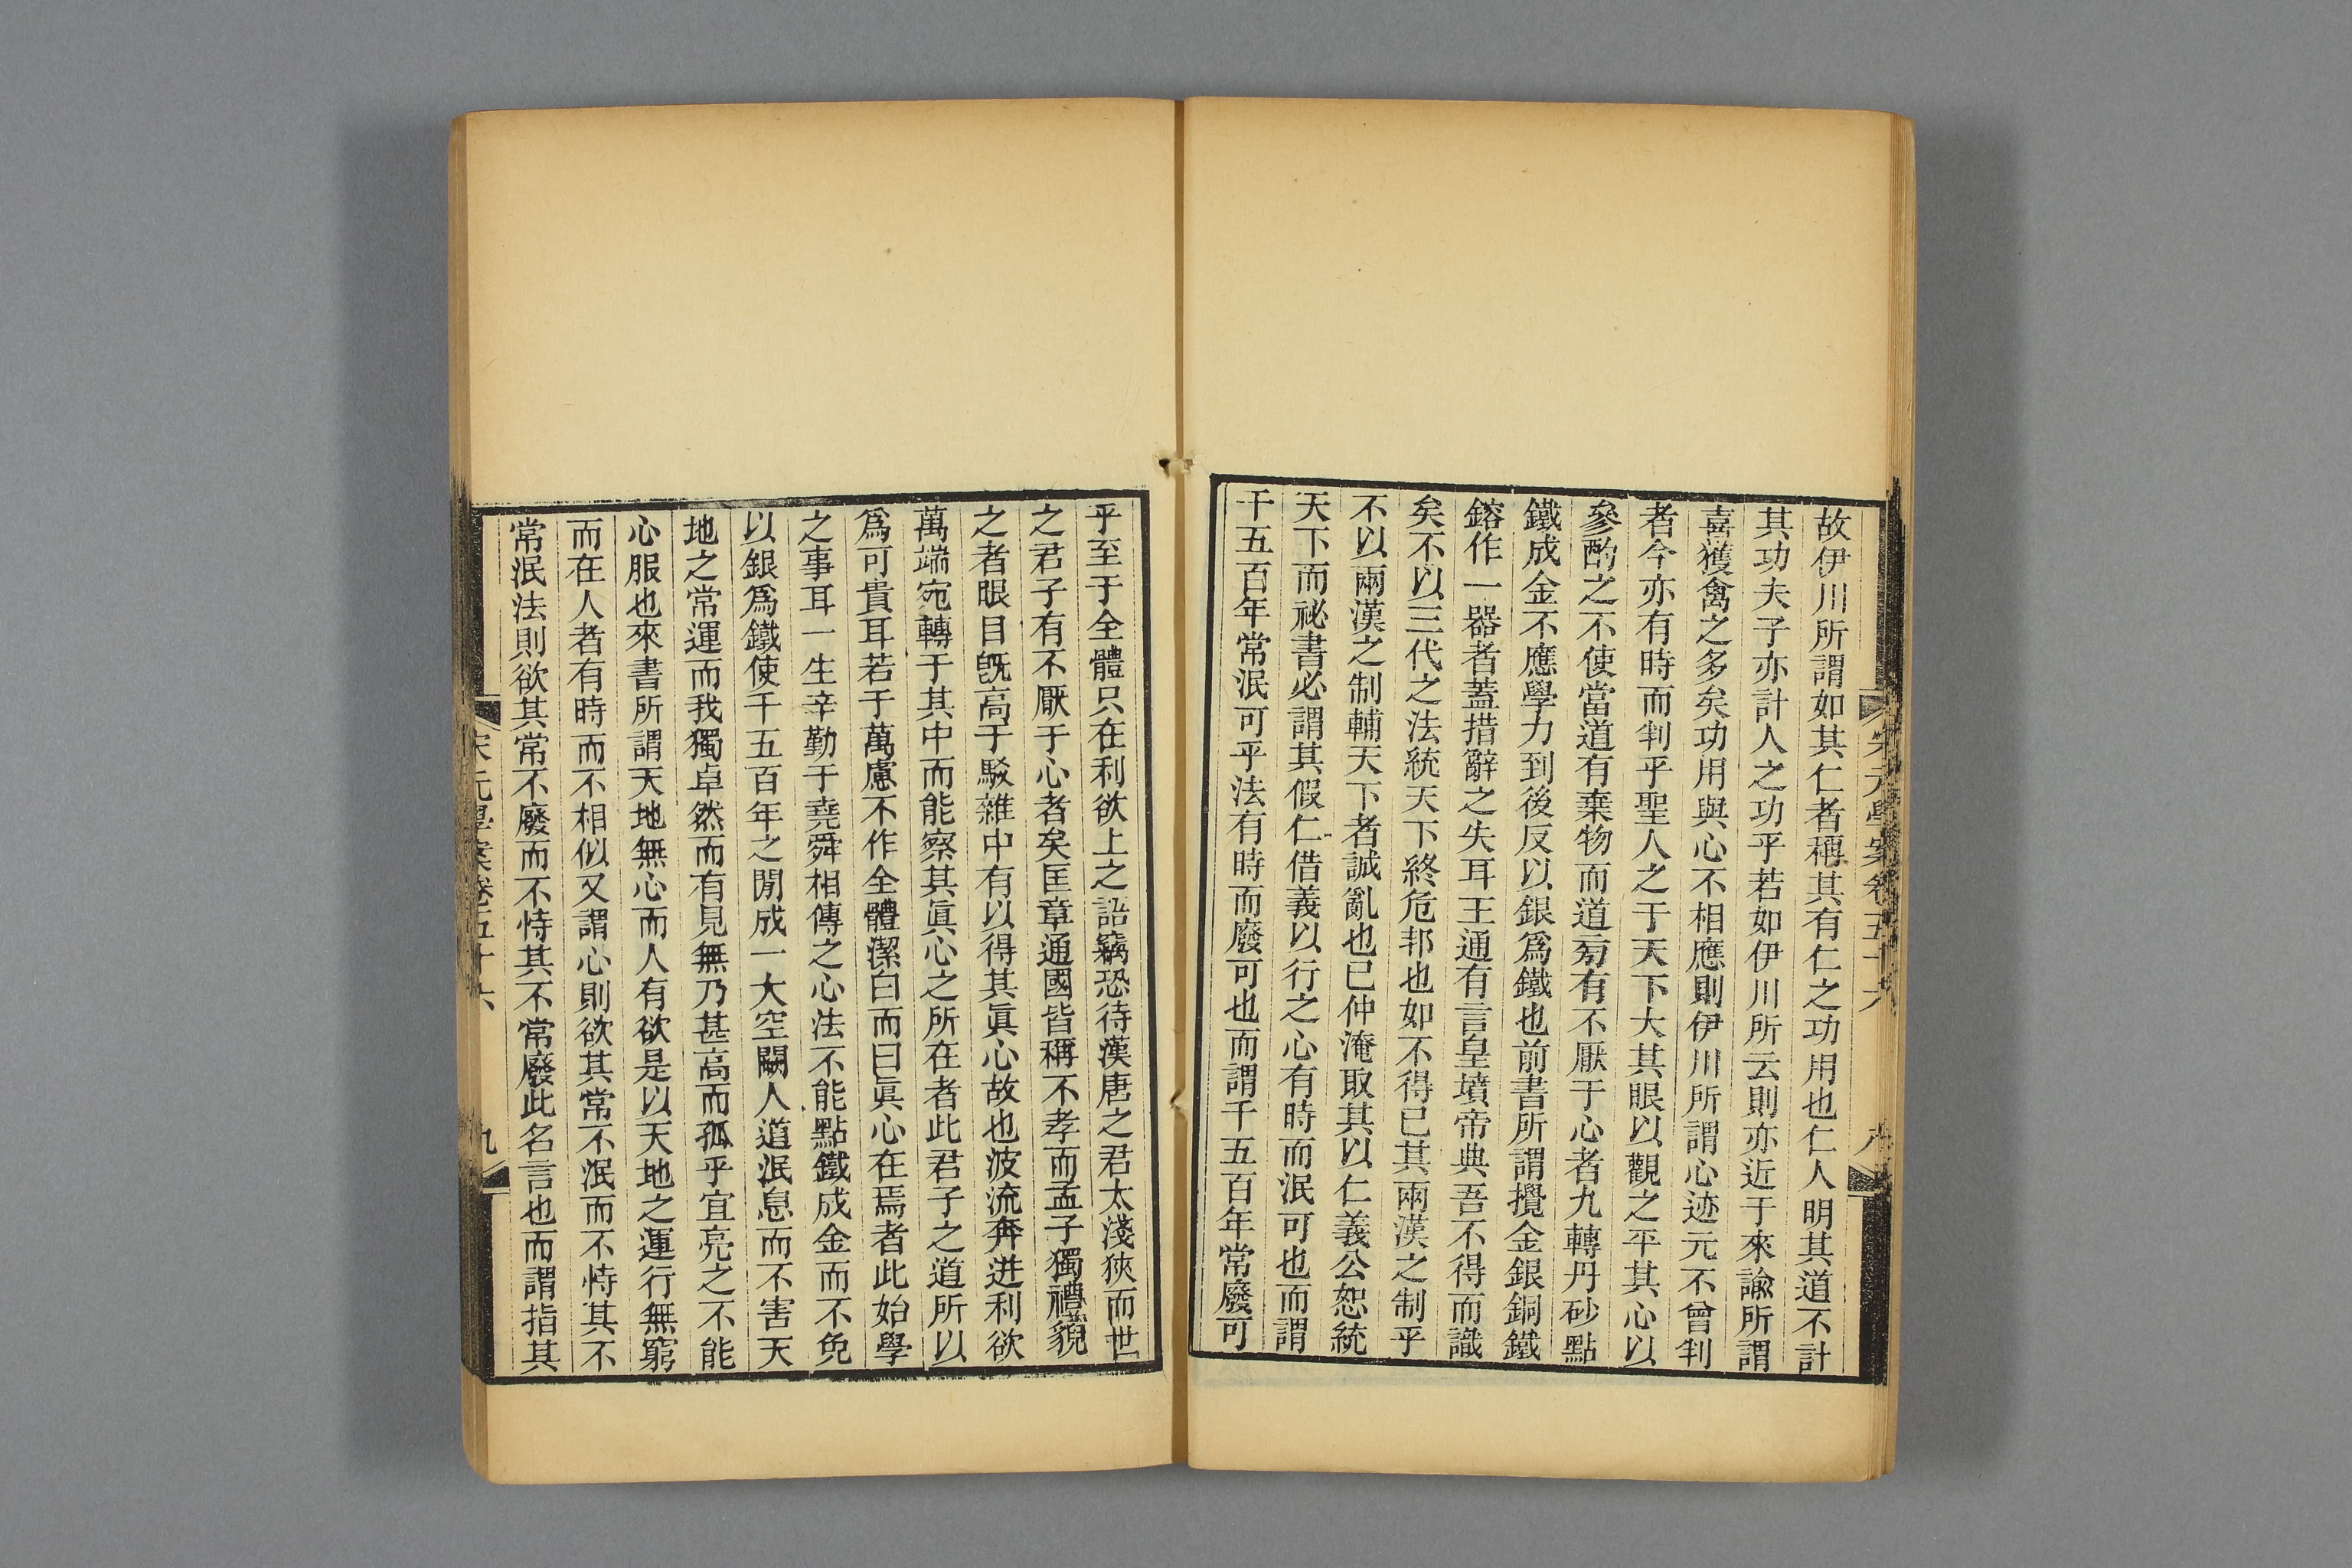 宋元學案卷五十六
故伊川所謂如其仁者稱其有仁之功用也仁人明其道不計
其功夫子亦計人之功乎若如伊川所云則亦近于來諭所謂
喜獲禽之多矣功用與心不相應則伊川所謂心迹元不曾判
者今亦有時而判乎聖人之于天下大其眼以觀之平其心以
參酌之不使當道有棄物而道旁有不厭于心者九轉丹砂點
鐵成金不應學力到後反以銀爲鐵也前書所謂攪金銀銅鐵
鎔作一器者蓋措辭之失耳王通有言皇墳帝典吾不得而識
矣不以三代之法統天下終危邦也如不得已其兩漢之制乎
不以兩漢之制輔天下者誠亂也已仲淹取其以仁義公恕統
天下而祕書必謂其假仁借義以行之心有時而泯可也而謂
千五百年常泯可乎法有時而廢可也而謂千五百年常廢可
乎至于全體只在利欲上之語竊恐待漢唐之君太淺狹而世
之君子有不厭于心者矣匡章通國皆稱不孝而孟子獨禮貌
之者眼目旣高于駁雜中有以得其眞心故也波流奔迸利欲
萬端宛轉于其中而能察其眞心之所在者此君子之道所以
爲可貴耳若于萬慮不作全體潔白而曰眞心在焉者此始學
之事耳一生辛勤于堯舜相傳之心法不能點鐵成金而不免
以銀爲鐵使千五百年之閒成一大空闕人道泯息而不害天
地之常運而我獨卓然而有見無乃甚高而孤乎宜亮之不能
心服也來書所謂天地無心而人有欲是以天地之運行無窮
而在人者有時而不相似又謂心則欲其常不泯而不恃其不
常泯法則欲其常不廢而不恃其不常廢此名言也而謂指其
宋元學案卷五十六
九